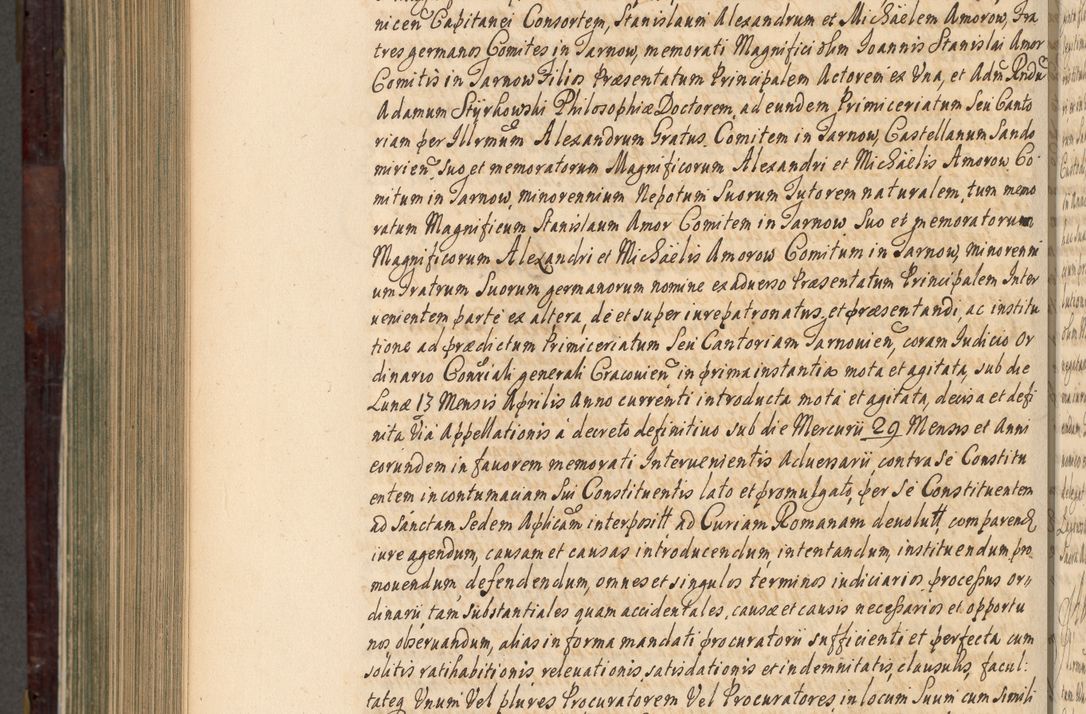 nicen̄ Capitanei Consortem, Stanislaum Alexandrum et Michäelem Amorow, Fra
tres germanos Comites in Tarnow, memorati Magnifici olim Joannis Stanislai Amor
Comitis in Tarnow Filios Præsentatum Principalem Actorem ex Una, et Adm̄ Rndū
Adamum Styrkowski Philosophiæ Doctorem, ad eundem Primiceriatum Seu Canto
riam per Illrmum Alexandrum Gratus Comitem in Tarnow, Castellanum Sando
mirien̄, suo et memoratorum Magnificorum Alexandri et Michäelis Amorow Co
mitum in Tarnow, minorennium Nepotum Suorum Tutorem naturalem, tum memo
ratum Magnificum Stanislaum Amor Comitem in Tarnow Suo et memoratorum
Magnificorum Alexandri et Michäelis Amorow Comitum in Tarnow, minorenni
um Fratrum Suorum germanorum nomine ex adverso Præsentatum Principalem Inter
uenientem parte ex altera, de et super iurepatronatus, et præsentandi, ac institu
tione ad prædictum Primiceriatum Seu Cantoriam Tarnovien̄, coram Judicio Or
dinario Consriali generali Cracovien̄ in prima instantia mota et agitata, sub die
Lunæ 13 Mensis Aprilis Anno currenti introducta mota et agitata, decisa et defi
nita Via Appellationis à decreto definitivo sub die Mercurii 29 Mensis et Anni
eorundem in fauorem memorati Interuenientis Aduersarii, contra Se Constitu
entem in contumaciam Sui Constituentis lato et promulgato, per Se Constituentem
ad Sanctam Sedem Aplicam interpositt ad Curiam Romanam deuolutt, comparend
iure agendum, causam et causas introducendum, intentandum, instituendum pro
mouendum, defendendum, omnes et singulos terminos iudiciarios processus or„
dinarii tam substantiales quam accidentales, causæ et causis necessarios et opportu
nos obseruandum, alias in forma mandati procuratorii sufficienti et perfecta cum
solitis ratihabitionis releuationis, satisdationis et indemnitatis, clausulis, facul:
tateq Unum Vel plures Procuratorem Vel Procuratores, in locum Suum cum Simili